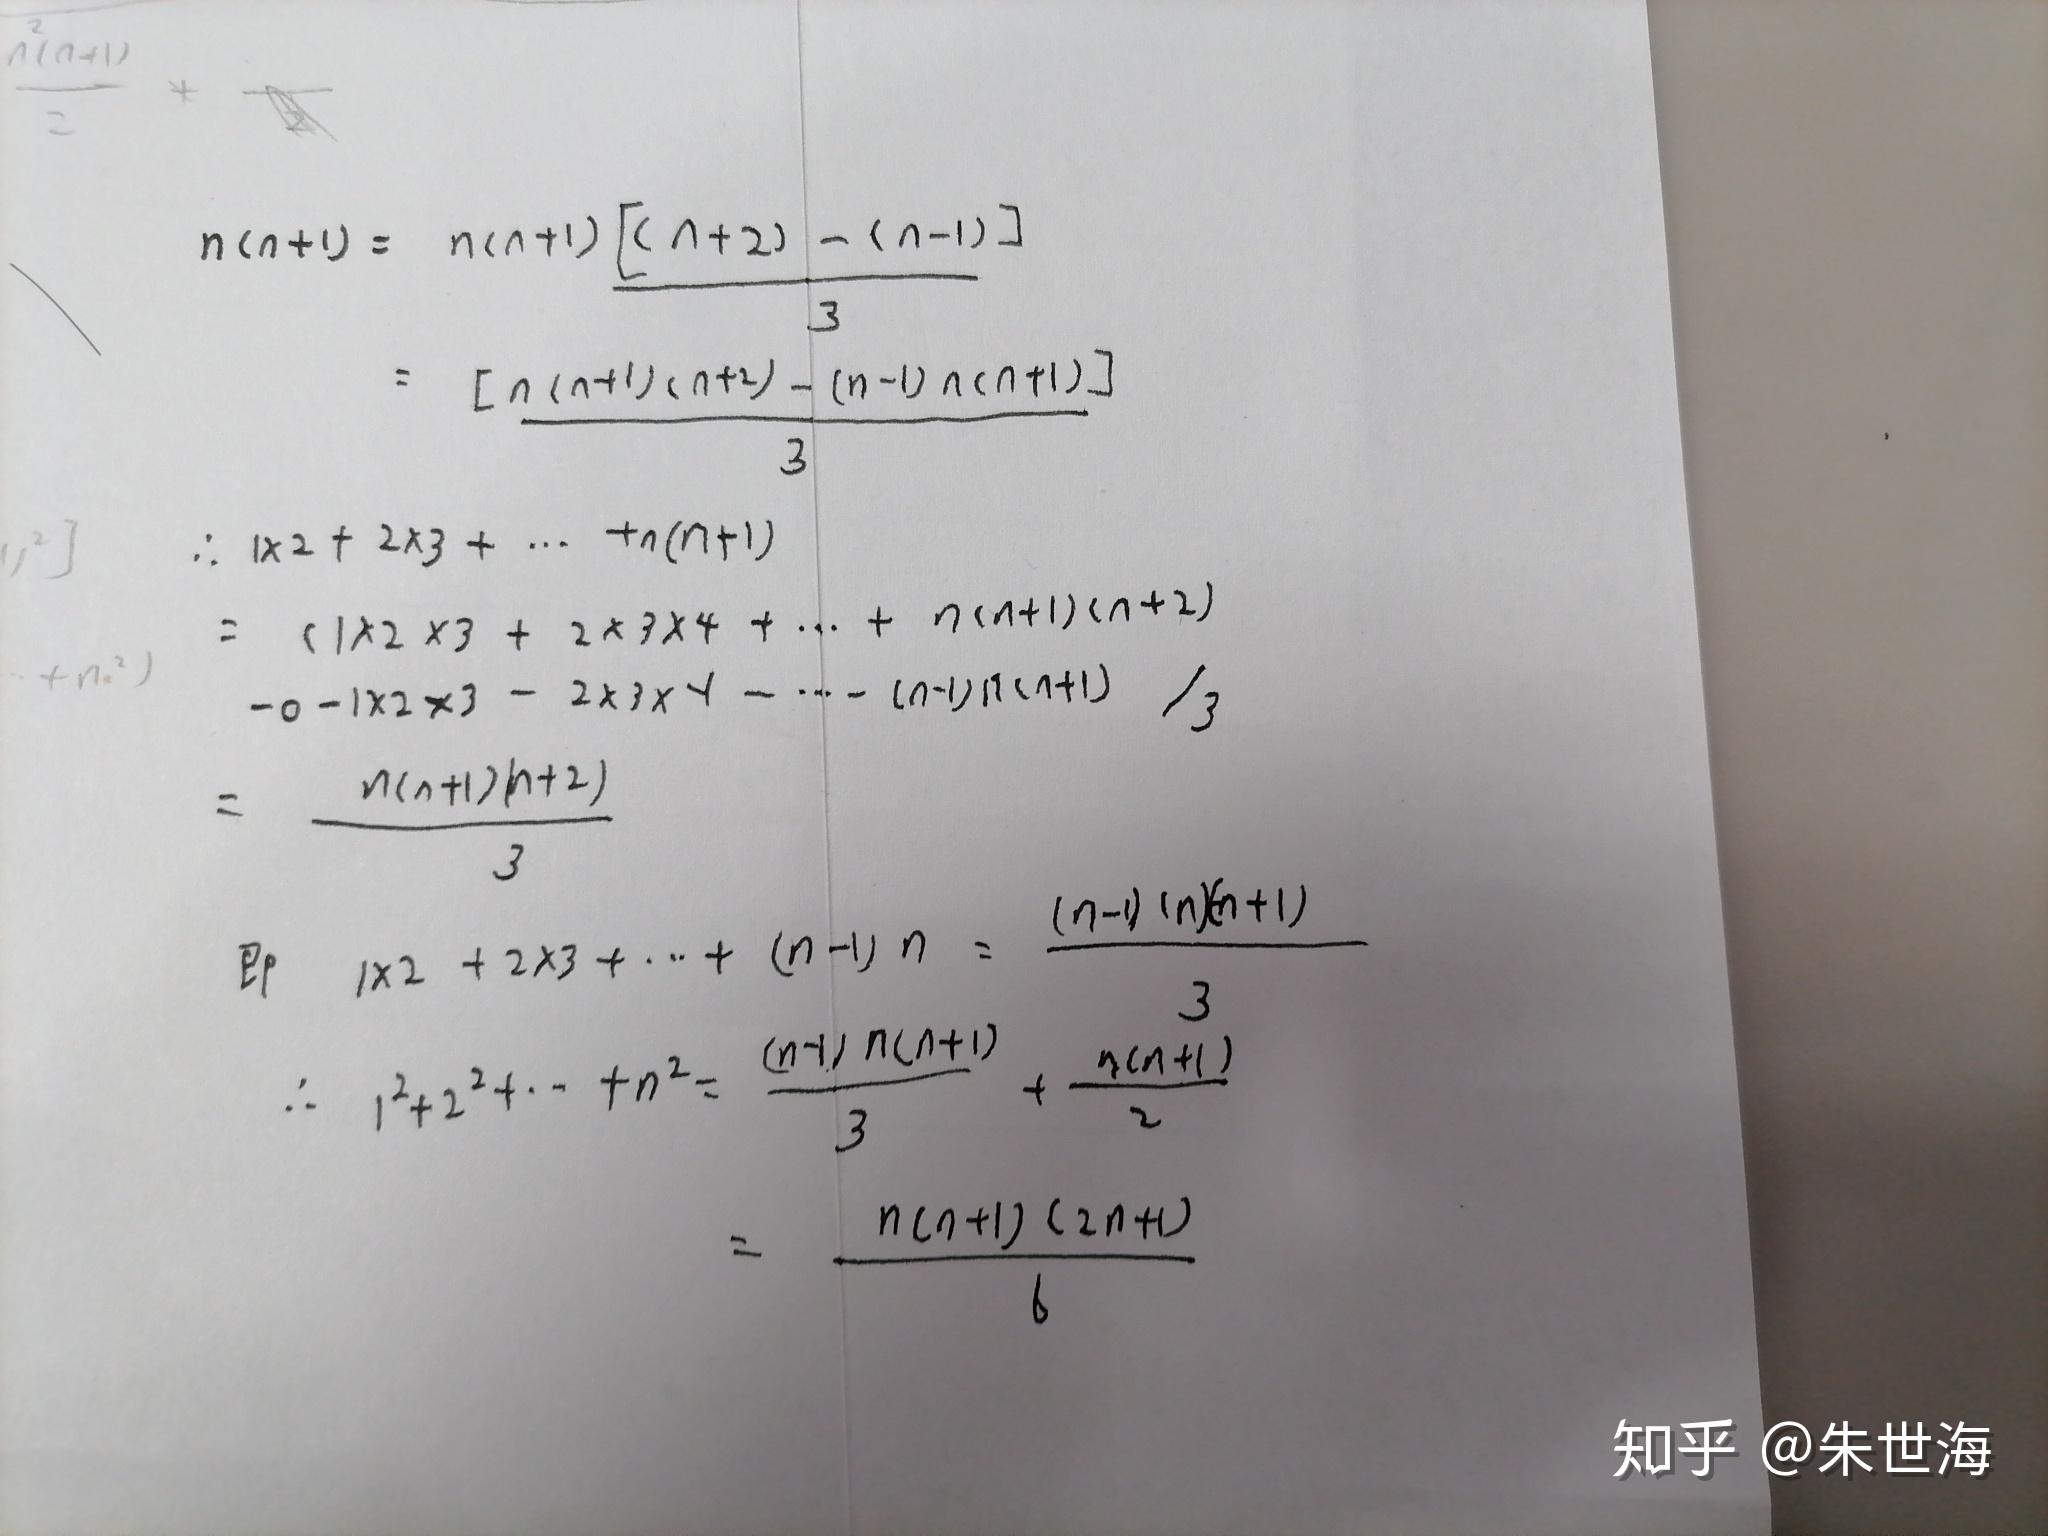 n²(n+1)/2 *
n(n+1) = n(n+1)[(n+2) - (n-1)]/3
= [n(n+1)(n+2) - (n-1)n(n+1)]/3
∴ 1×2 + 2×3 + ... +n(n+1)
= (1×2×3 + 2×3×4 + ... + n(n+1)(n+2)
-0 -1×2×3 - 2×3×4 - ... - (n-1)n(n+1) /3
= n(n+1)(n+2)/3
即 1×2 + 2×3 + ... + (n-1) n = (n-1)(n)(n+1)/3
∴ 1²+2²+... +n² = (n-1)n(n+1)/3 + n(n+1)/2
= n(n+1)(2n+1)/6
²]
+n²)
知乎 @朱世海